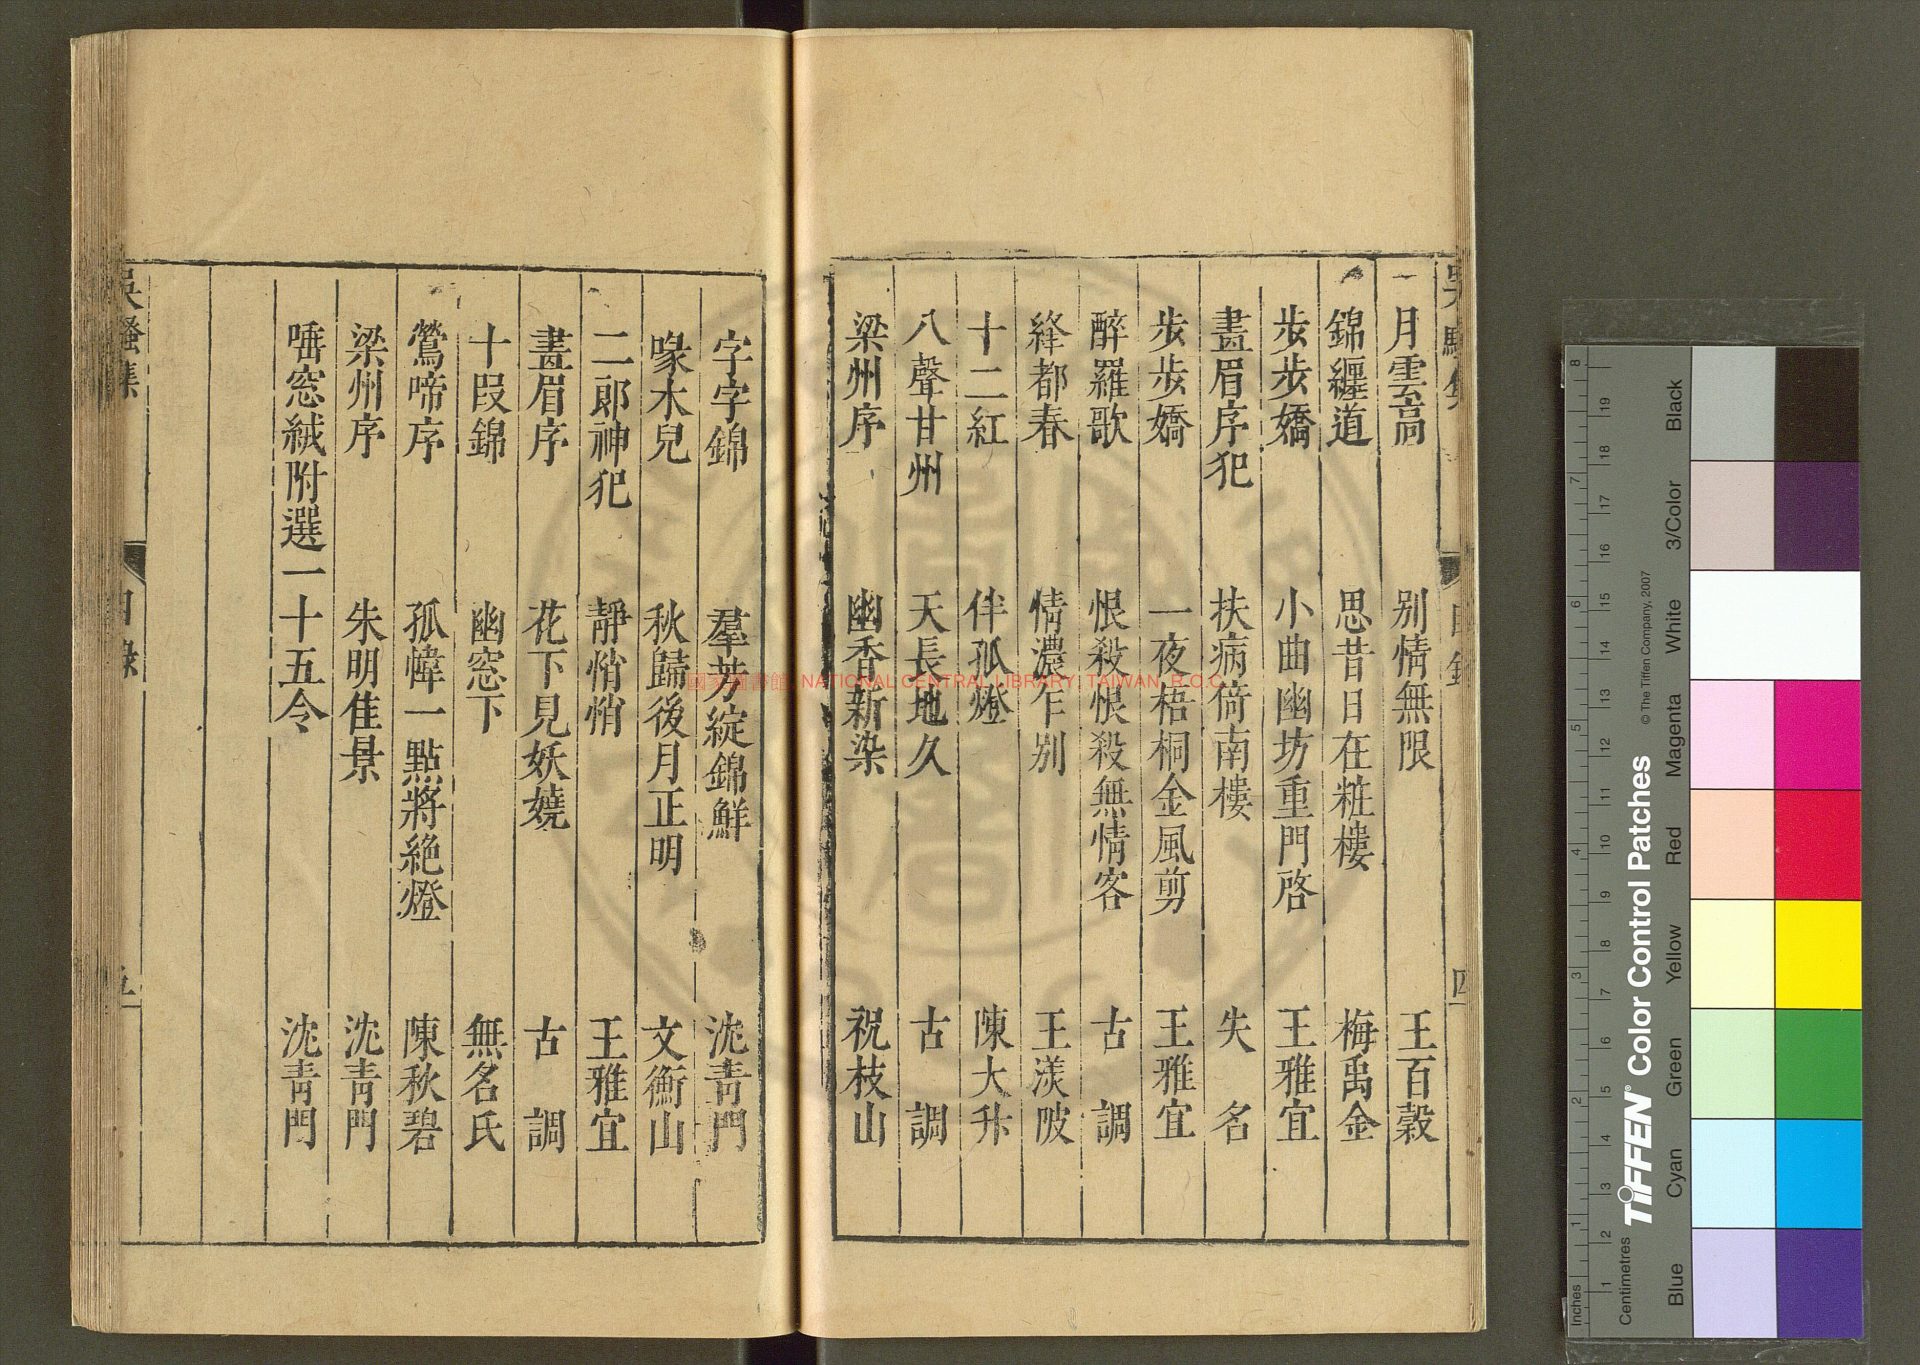 月雲高 別情無限 王百穀
錦纏道 思昔日在粧樓 梅禹金
步步嬌 小曲幽坊重門啓 王雅宜
畫眉序犯 扶病倚南樓 失名
步步嬌 一夜梧桐金風剪 王雅宜
醉羅歌 恨殺恨殺無情客 古調
絳都春 情濃乍別 王渼陂
十二紅 伴孤燈 陳大升
八聲甘州 天長地久 古調
梁州序 幽香新染 祝枝山
字字錦 羣芳綻錦鮮 沈青門
啄木兒 秋歸後月正明 文衡山
二郎神犯 靜悄悄 王雅宜
畫眉序 花下見妖嬈 古調
十段錦 幽窓下 無名氏
鶯啼序 孤幃一點將絶燈 陳秋碧
梁州序 朱明佳景 沈青門
唾窓絨附選一十五令 沈青門
吳騷集 目錄 五
國家圖書館 NATIONAL CENTRAL LIBRARY, TAIWAN, R.O.C.
Inches 1 2 3 4 5 6 7 8
Centimetres 1 2 3 4 5 6 7 8 9 10 11 12 13 14 15 16 17 18 19
TIFFEN® Color Control Patches
© The Tiffen Company, 2007
Blue Cyan Green Yellow Red Magenta White 3/Color Black